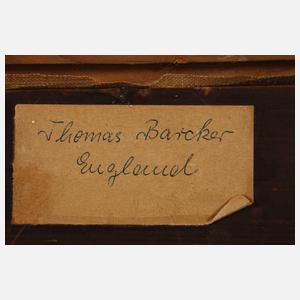 Thomas Barcker
England